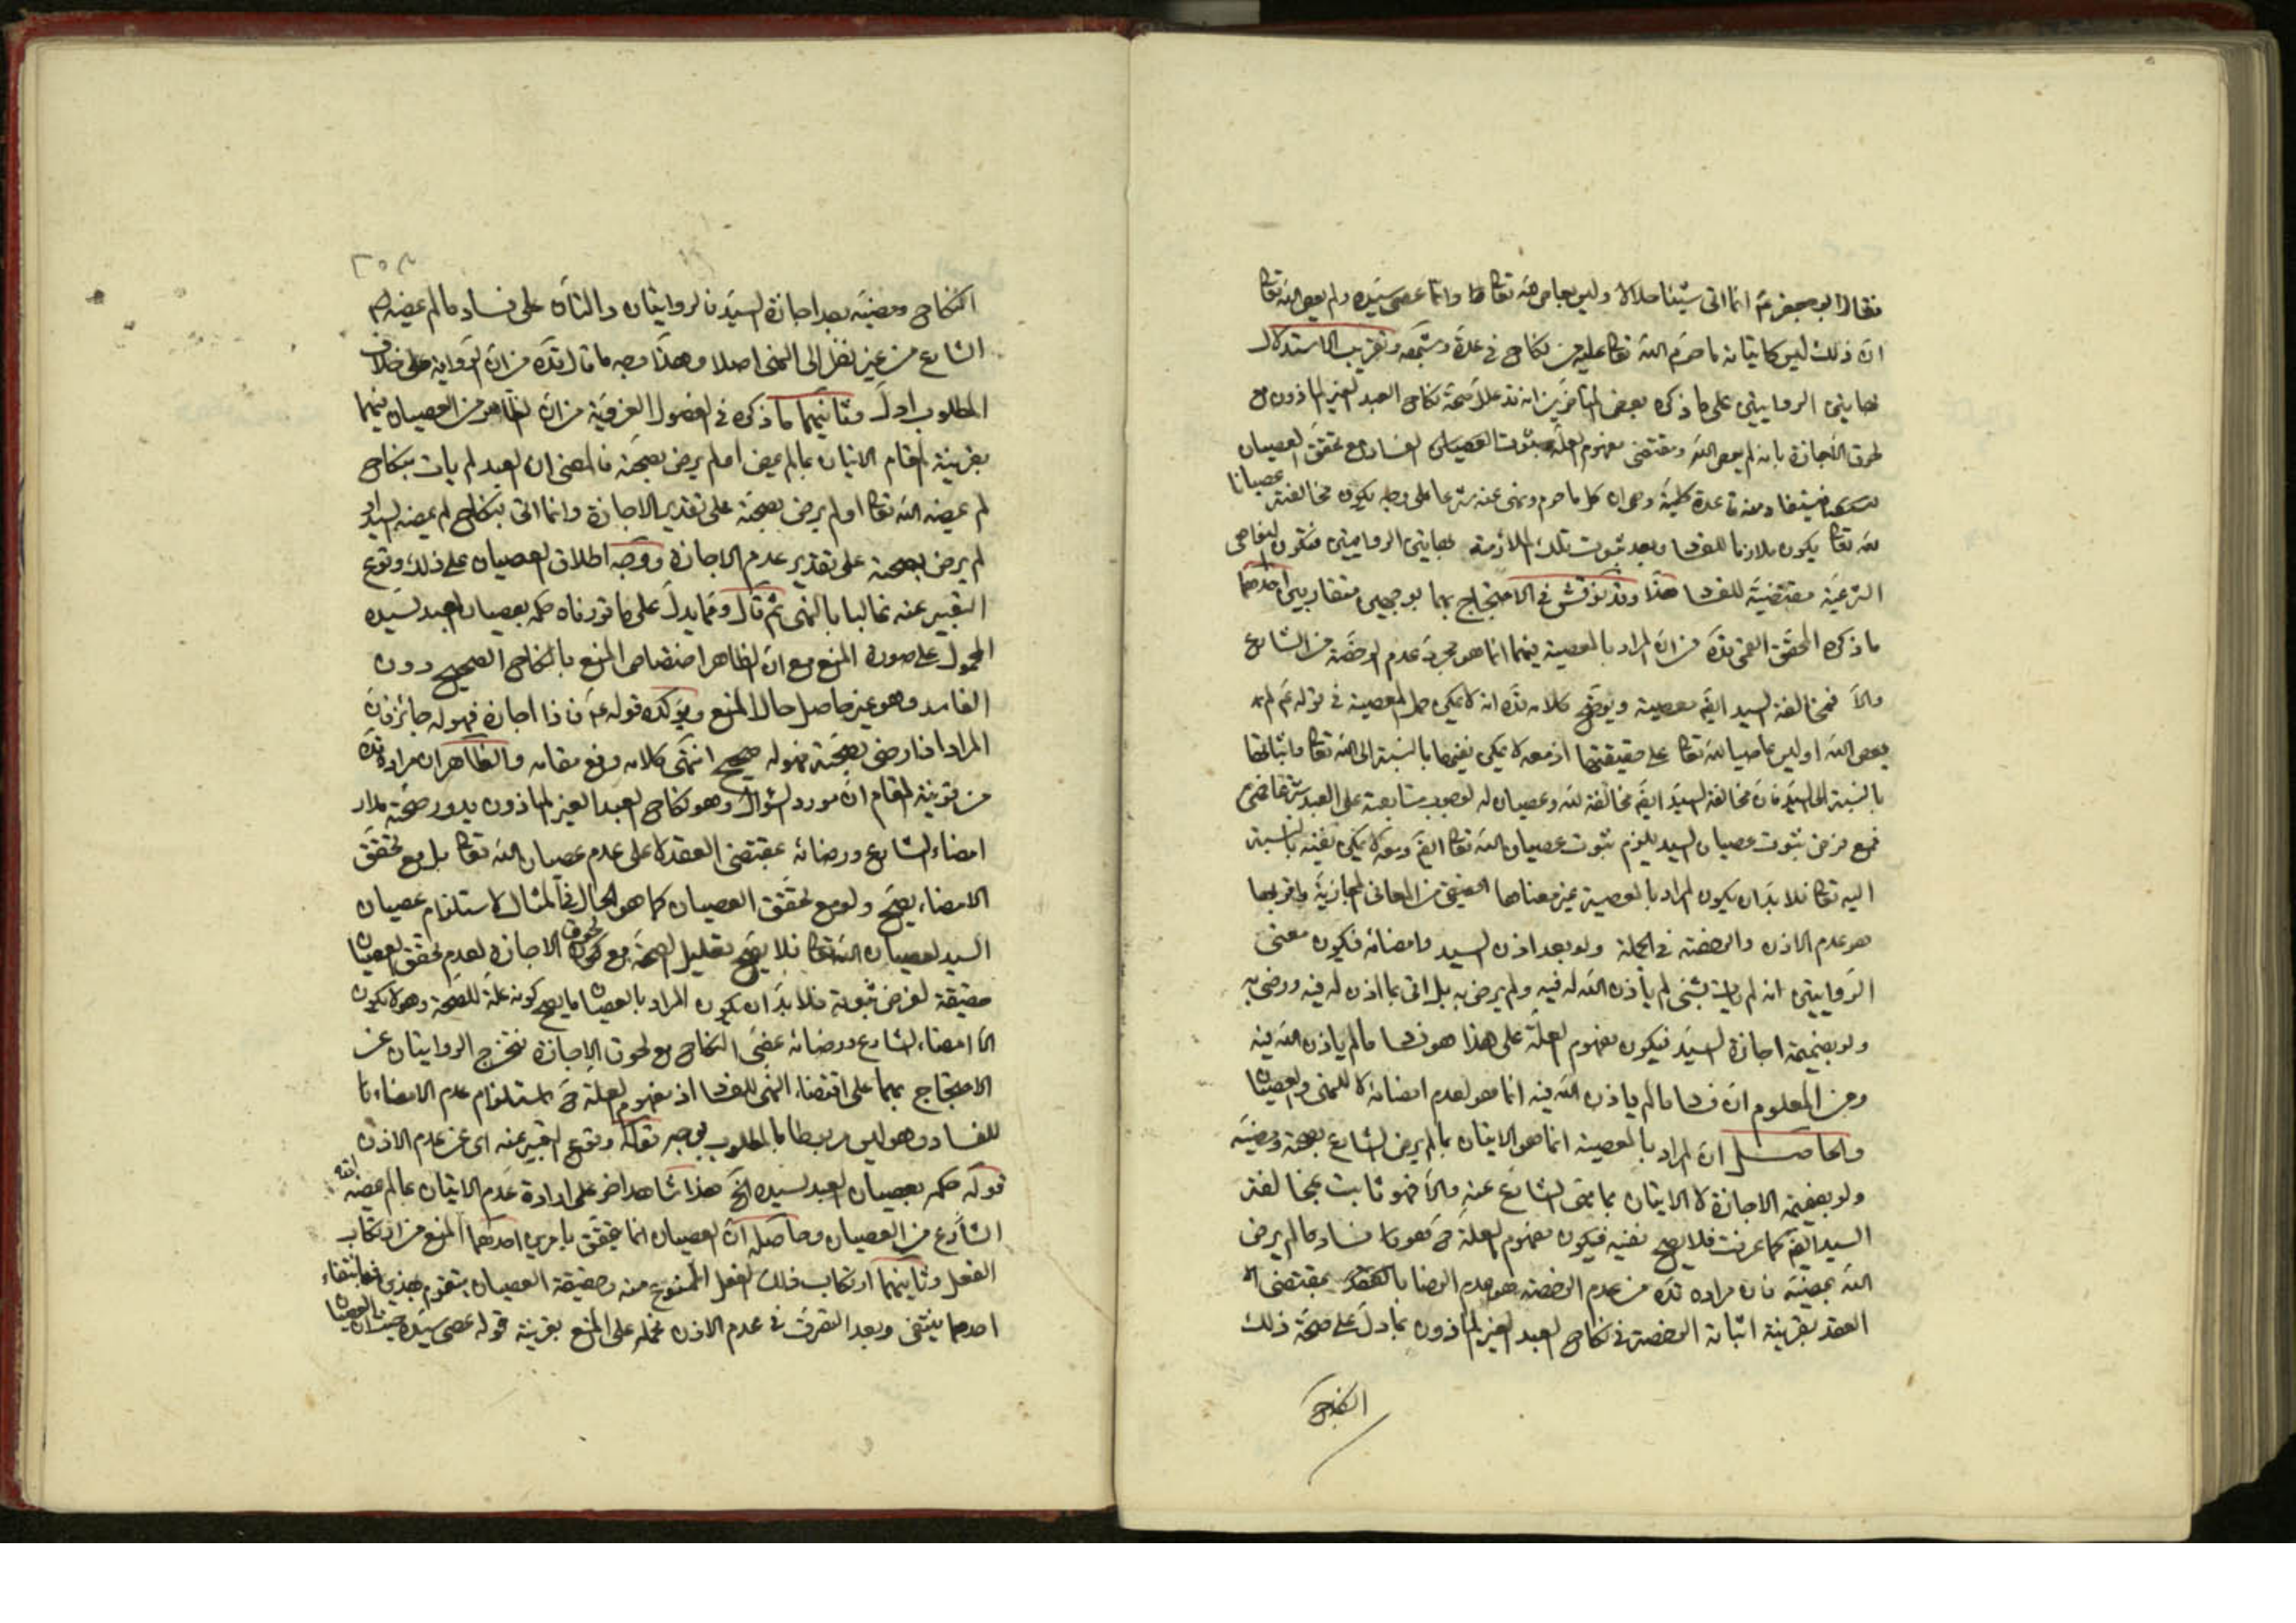 فقال ابو جعفر عم انما اتى شيئا حلالا وليس بعاص لله تعالى وانما عصى سيده ولم يعص الله تعالى
ان ذلك ليس كاتيانه ما حرم الله تعالى عليه من نكاح في عدة وشبهه وتقريب الاستدلال
بهاتين الروايتين على ما ذكره بعض المتاخرين انه قد علل صحة نكاح العبد الغير الماذون مع
لحوق الاجازة بانه لم يعص الله ومقتضى مفهوم العلة ثبوت الفساد مع تحقق العصيان
فيستفاد منه قاعدة كلية وهى ان كل ما حرم ونهى عنه شرعا على وجه يكون مخالفته عصيانا
لله تعالى يكون ملازما للفسا وبعد ثبوت تلك الملازمة بهاتين الروايتين فتكون النواهى
الشرعية مقتضية للفسا هذا وقد نوقش في الاحتجاج بهما بوجهين متقاربين احدهما
ما ذكره المحقق القمى قده من ان المراد بالمعصية فيهما انما هو مجرد عدم الرخصة من الشارع
والا فمخالفة السيد ايضا معصية وتوضيح كلامه قده انه لا يمكن حمل المعصية في قوله عم لم
يعص الله او ليس عاصيا لله تعالى على حقيقتها اذ معه لا يمكن نفيها بالنسبة الى الله تعالى واثباتها
بالنسبة الى السيد فان مخالفة السيد ايضا مخالفة لله وعصيان له لوجوب متابعته على العبد شرعا
فمع فرض ثبوت عصيان السيد يلزم ثبوت عصيان الله تعالى ايضا ومعه لا يمكن نفيه بالنسبة
اليه تعالى فلا بد ان يكون المراد بالمعصية غير معناها الحقيقى من المعانى المجازية واقربها
هو عدم الاذن والرخصة في الجملة ولو بعد اذن السيد وامضائه فيكون معنى
الروايتين انه لم يات بشئ لم ياذن الله له فيه ولم يرض به بل اتى بما اذن له فيه ورضى به
ولو بضميمة اجازة السيد فيكون مفهوم العلة على هذا هو فسا ما لم ياذن الله فيه
ومن المعلوم ان فسا ما لم ياذن الله فيه انما هو لعدم امضائه لا للنهى والعصيان
والحاصل ان المراد بالمعصية انما هو الاتيان بما لم يرض الشارع بصحته ومضيه
ولو بضميمة الاجازة لا الاتيان بما نهى الشارع عنه والا فهو ثابت بمخالفة
السيد ايضا كما عرفت فلا يصح نفيه فيكون مفهوم العلة ح هو فساد ما لم يرض
الله بمضيه فان مراده قده من عدم الرخصة هو عدم الرضا بالعقد بمقتضى
العقد بقرينة اثباته الرخصة في نكاح العبد الغير الماذون بما دل على صحة ذلك
النكاح
٢٠٣
النكاح ومضيه بعد اجازة السيد فالروايتان دالتان على فساد ما لم يمضه
الشارع من غير نظر الى النهى اصلا وهذا وجه ما قال قده من ان الرواية على خلاف
المطلوب ادل وثانيهما ما ذكره في الفصول الغروية من ان الظاهر من العصيان فيهما
بقرينة المقام الاتيان بما لم يمض او لم يرض بصحته فالمعنى ان العبد لم يات بنكاح
لم يمضه الله تعالى او لم يرض بصحته على تقدير الاجازة وانما اتى بنكاح لم يمضه السيد او
لم يرض بصحته على تقدير عدم الاجازة ووجه اطلاق العصيان على ذلك وقوع
التعبير عنه غالبا بالنهى ثم قال ومما يدل على ما قررناه حكمه بعصيان العبد لسيده
المحمول على صورة المنع مع ان الظاهر اختصاص المنع بالنكاح الصحيح دون
الفاسد وهو غير حاصل حال المنع ويؤكده قوله عم فاذا اجازه فهو له جائز فان
المراد اذا رضى بصحته فهو له صحيح انتهى كلامه رفع مقامه والظاهر ان مراده قده
من قرينة المقام ان مورد السؤال وهو نكاح العبد الغير الماذون يدور صحته مدار
امضاء الشارع ورضائه بمقتضى العقد لا على عدم عصيان الله تعالى بل مع تحقق
الامضاء يصح ولو مع تحقق العصيان كما هو الحال في المثال لاستلزام عصيان
السيد لعصيان الله تعالى فلا يصح تعليل الصحة مع لحوق الاجازة لعدم تحقق العصيان
حقيقة لفرض ثبوته فلا بد ان يكون المراد بالعصيان ما يصح كونه علة للصحة وهو لا يكون
الا امضاء الشارع ورضائه بمضى النكاح مع لحوق الاجازة فتخرج الروايتان عن
الاحتجاج بهما على اقتضاء النهى للفسا اذ مفهوم العلة ح استلزام عدم الامضاء
للفساد وهو ليس مربوطا بالمطلوب بوجه قوله وقوع التعبير عنه اى عن عدم الاذن
قوله حكمه بعصيان العبد لسيده الخ هذا شاهد اخر على ارادة عدم الاتيان بما لم يمضه
الشارع من العصيان وحاصله ان العصيان انما يتحقق بامرين احدهما المنع من ارتكاب
الفعل وثانيهما ارتكاب ذلك الفعل الممنوع منه وحقيقة العصيان يتقوم بهذين فبانتفاء
احدهما ينتفى وبعد التصرف في عدم الاذن بحمله على المنع بقرينة قوله عصى سيده حيث ان العصيان